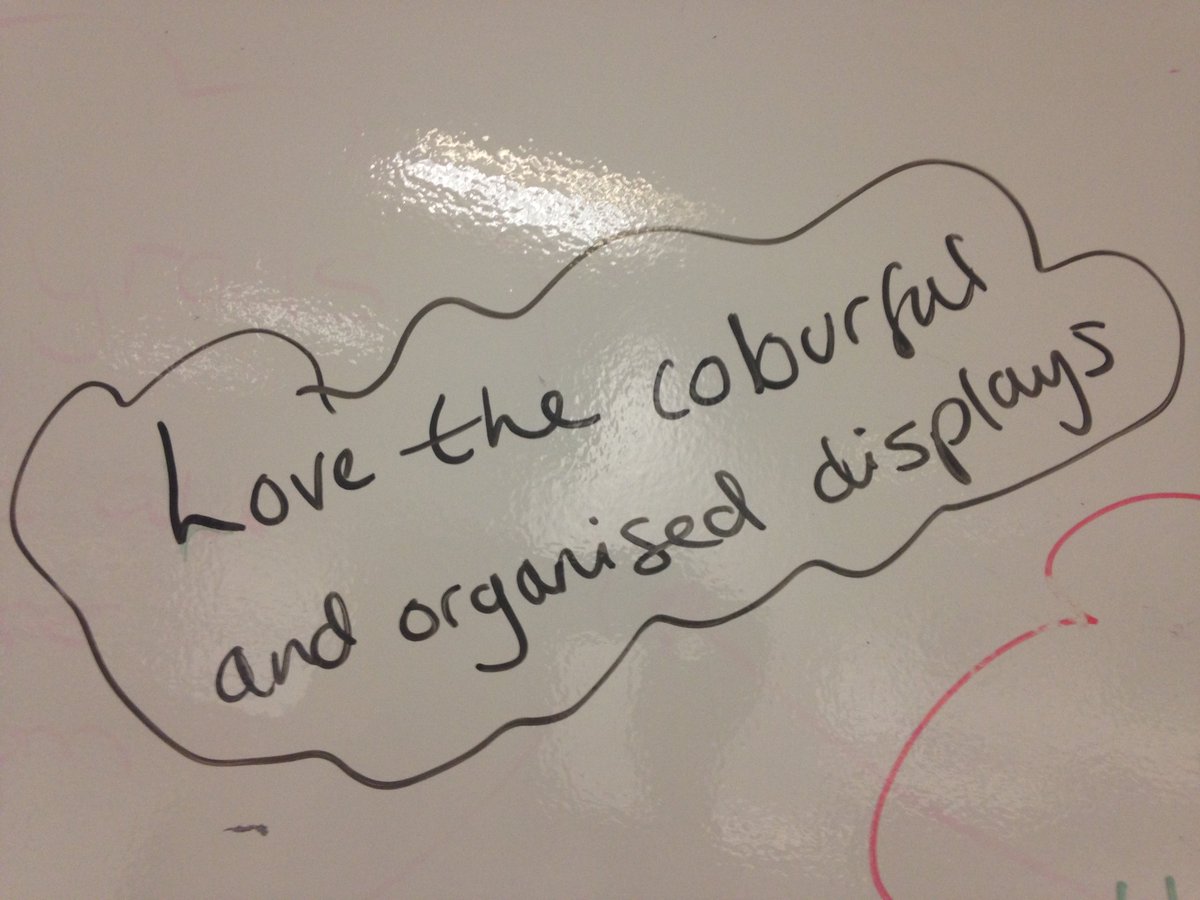 Love the colourful
and organised displays